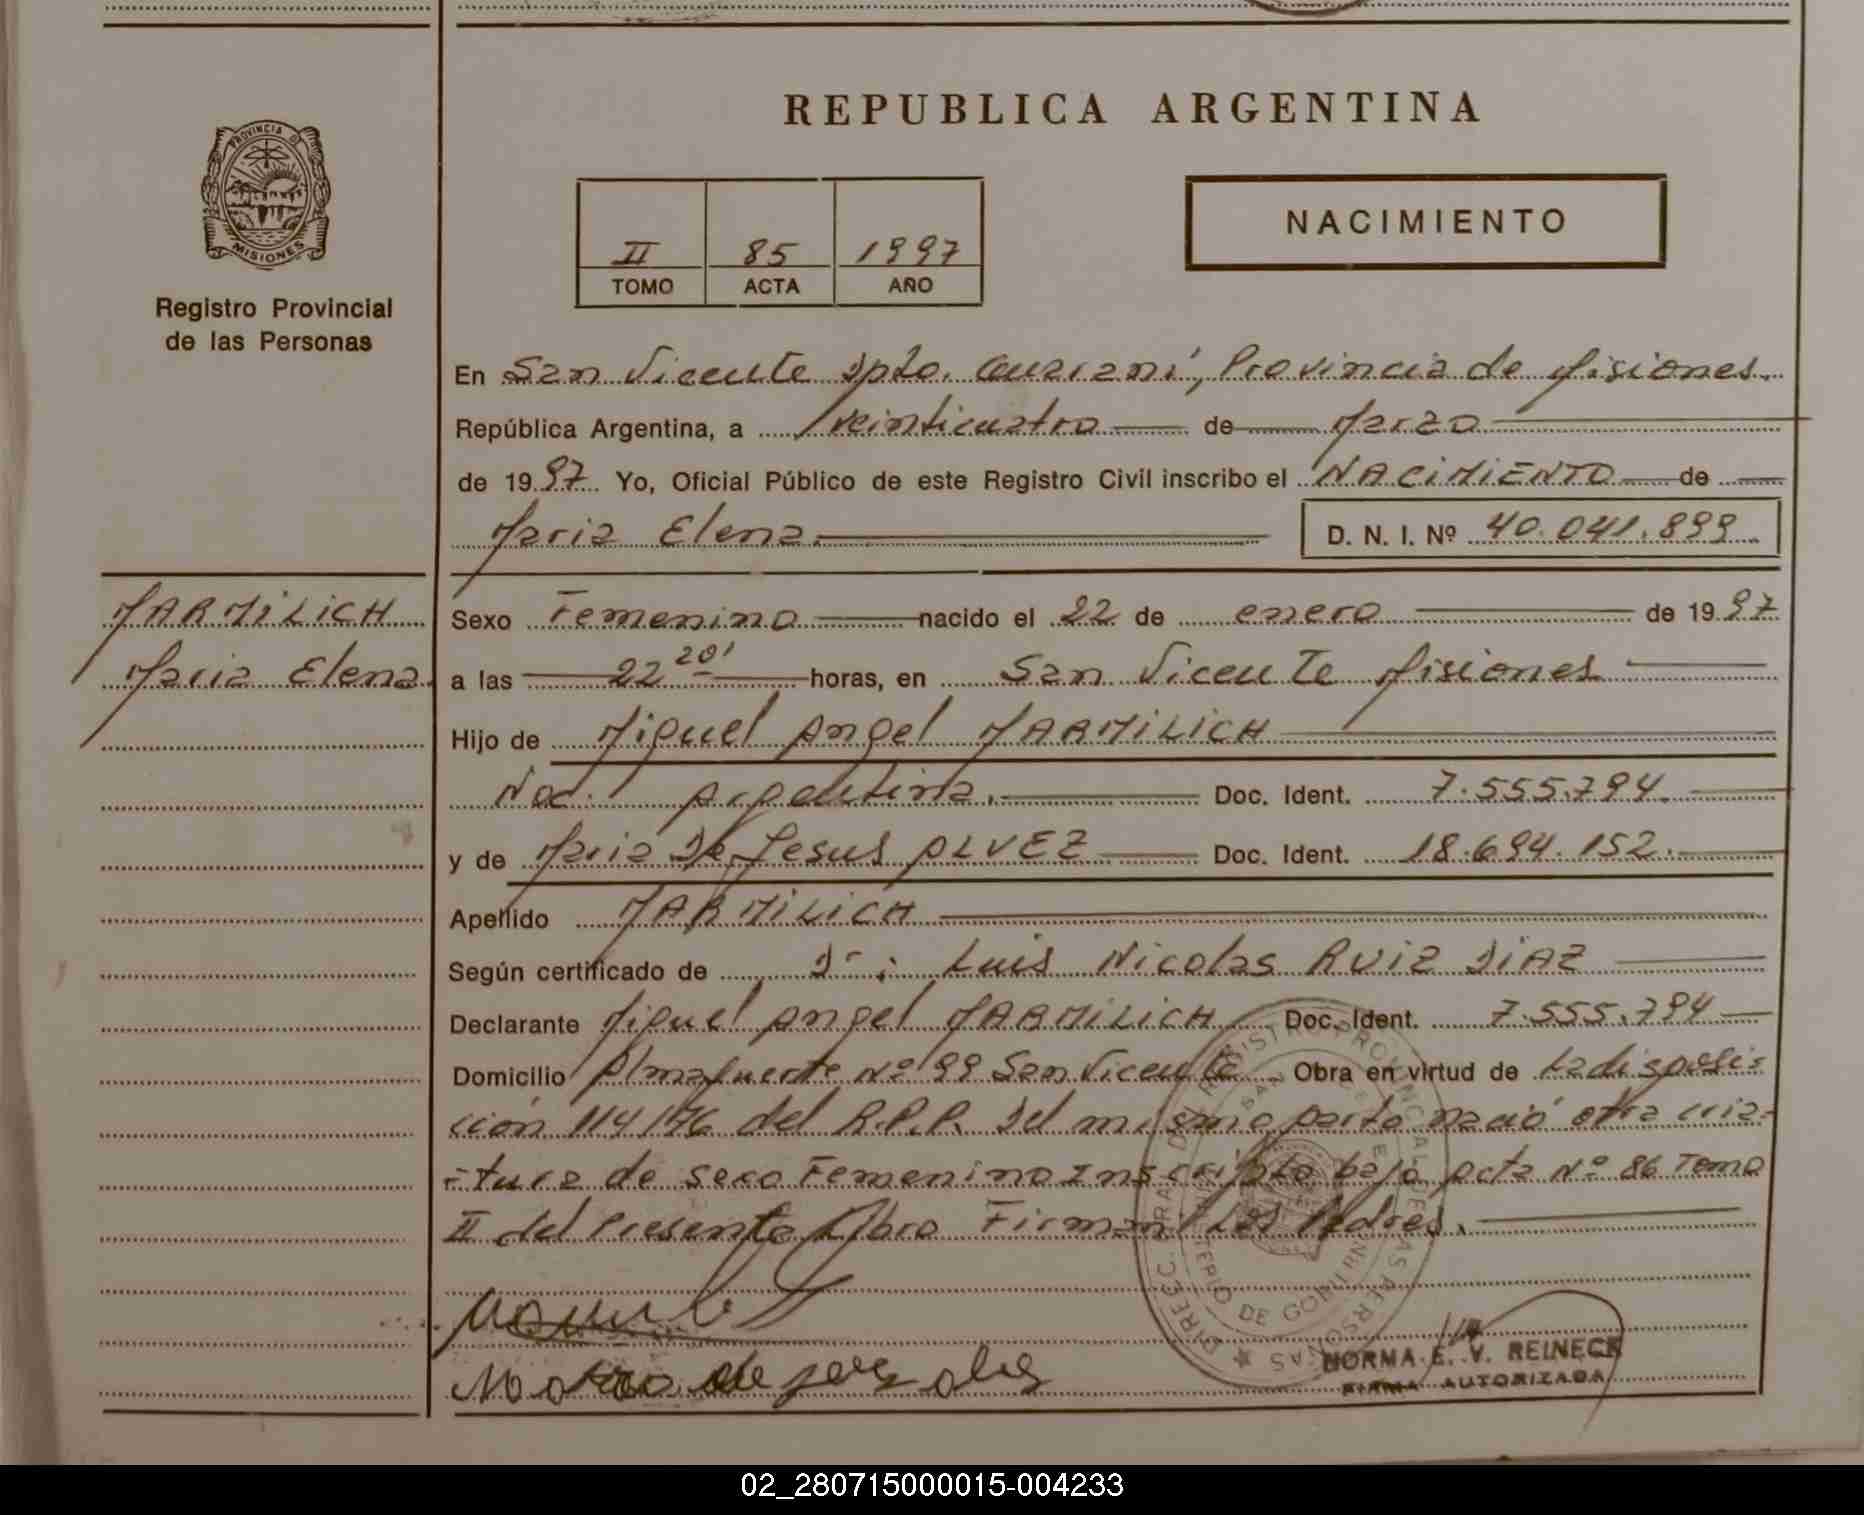 REPUBLICA ARGENTINA
PROVINCIA DE
MISIONES
Registro Provincial
de las Personas
II 85 1997
TOMO ACTA AÑO
NACIMIENTO
En San Vicente Dpto. Guaraní, Provincia de Misiones.
República Argentina, a Veinticuatro de Marzo
de 1997 Yo, Oficial Público de este Registro Civil inscribo el NACIMIENTO de
Maria Elena. D. N. I. Nº 40.041.899
MARMILICH
Maria Elena.
Sexo Femenino nacido el 22 de enero de 1997
a las 22 20' horas, en San Vicente Misiones
Hijo de Miguel Angel MARMILICH
Nac. Argentina. Doc. Ident. 7.555.794.
y de Maria De Jesus ALVEZ Doc. Ident. 18.694.152.
Apellido MARMILICH
Según certificado de Dr: Luis Nicolas RUIZ DIAZ
Declarante Miguel Angel MARMILICH Doc. Ident. 7.555.794
Domicilio Almafuerte Nº 99 San Vicente Obra en virtud de La disposi-
ción 114/76 del R.P.P. Del mismo parto nació otra cria-
-tura de sexo Femenino Inscripta bajo Acta Nº 86 Tomo
II del Presente Libro Firman Los Padres.
DIREC. GRAL. DE REGISTRO PROVINCIAL DE LAS PERSONAS
NORMA E. V. REINECK
FIRMA AUTORIZADA
02_280715000015-004233